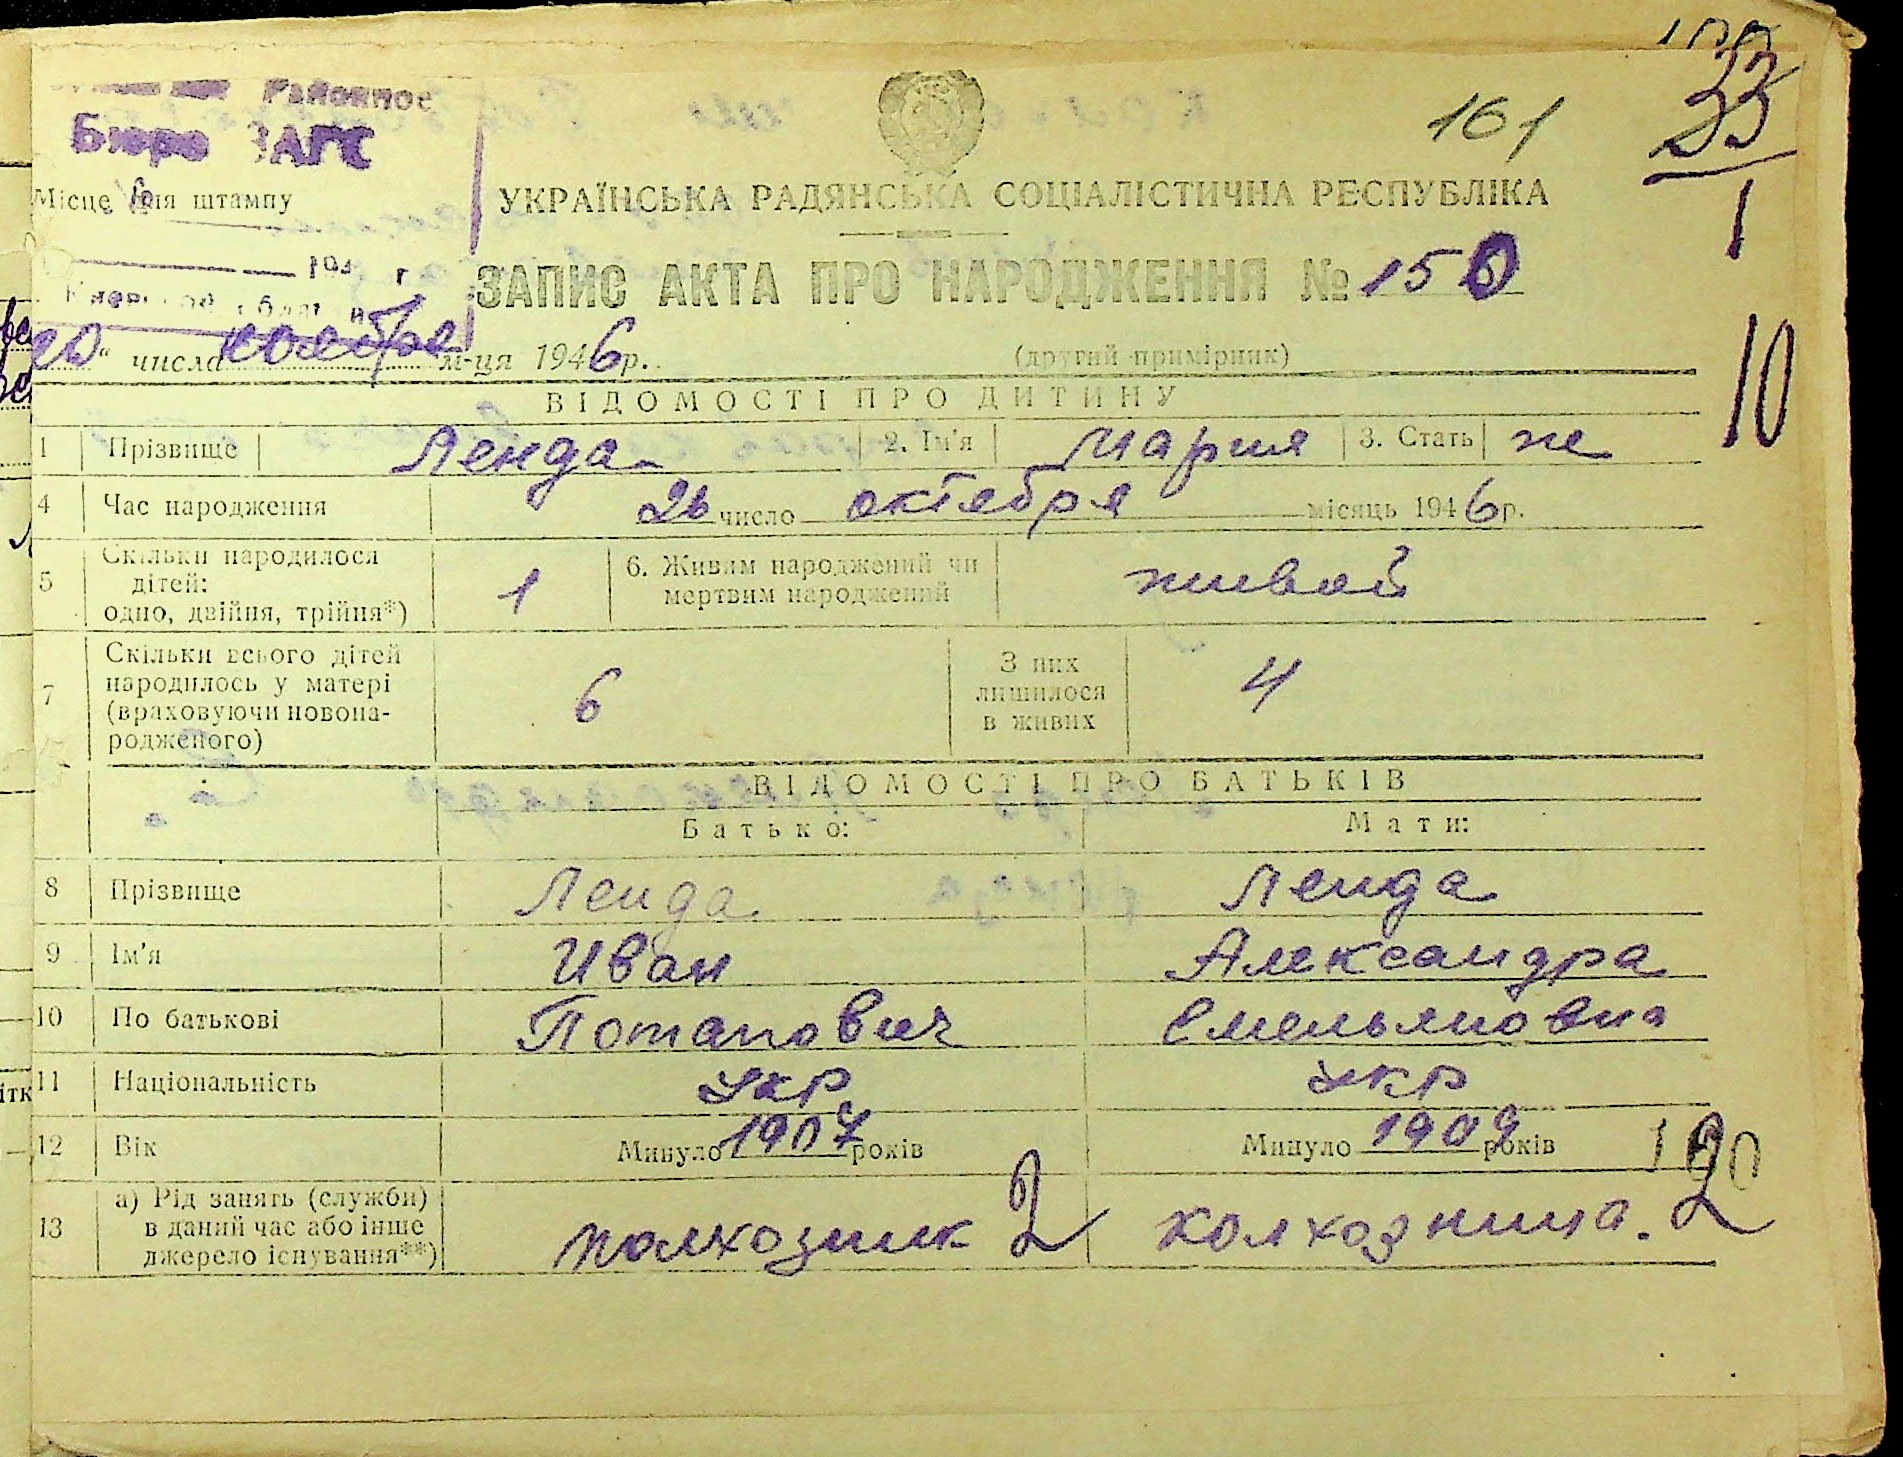 Районное
Бюро ЗАГС
161
33
1
Місце для штампу
УКРАЇНСЬКА РАДЯНСЬКА СОЦІАЛІСТИЧНА РЕСПУБЛІКА
ЗАПИС АКТА ПРО НАРОДЖЕННЯ № 150
числа ноября м-ця 1946 р.
(другий примірник)
10
ВІДОМОСТІ ПРО ДИТИНУ
1 Прізвище Ленда 2. Ім'я Мария 3. Стать ж
4 Час народження 26 число октября місяць 1946 р.
5 Скільки народилося дітей: одно, двійня, трійня*) 1 6. Живим народжений чи мертвим народжений живой
7 Скільки всього дітей народилось у матері (враховуючи новонародженого) 6 З них лишилося в живих 4
ВІДОМОСТІ ПРО БАТЬКІВ
Батько: Мати:
8 Прізвище Ленда Ленда
9 Ім'я Иван Александра
10 По батькові Потапович Емельяновна
11 Національність укр укр
12 Вік Минуло 1907 років Минуло 1909 років
13 а) Рід занять (служби) в даний час або інше джерело існування**) колхозник 2 колхозница. 2